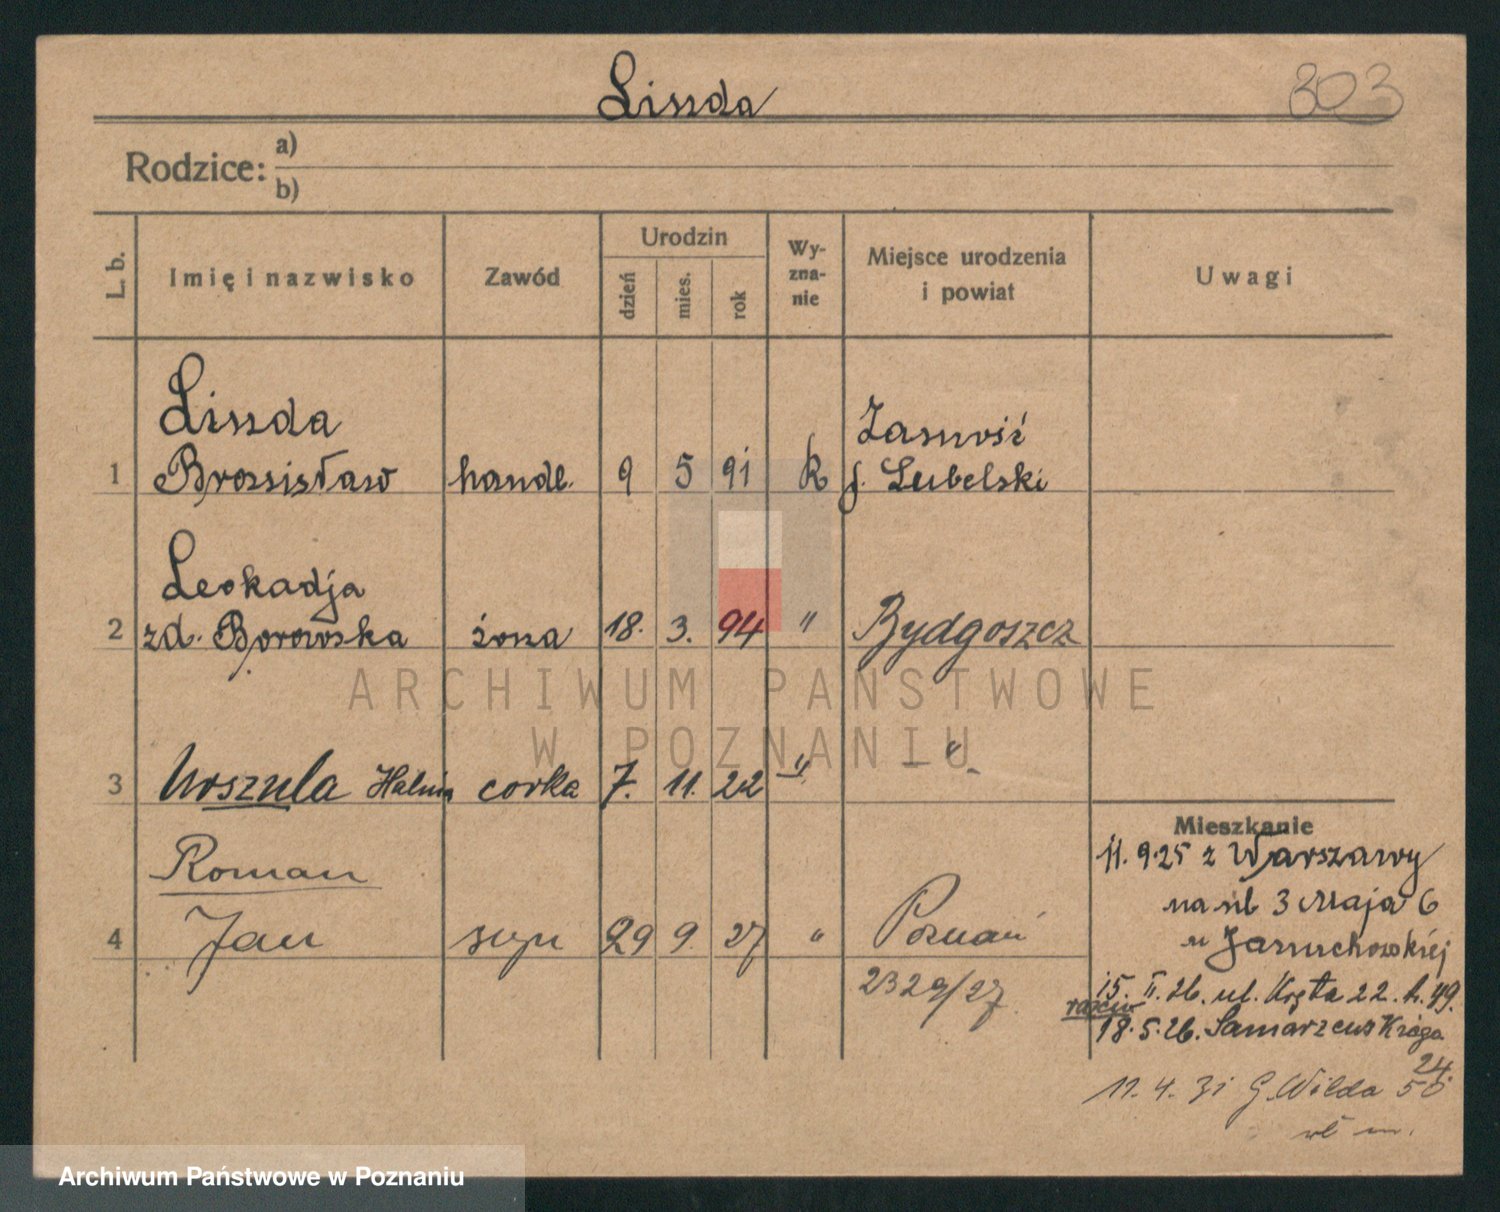 Linda
303
Rodzice: a)
b)
L. b.
Imię i nazwisko
Zawód
Urodzin
dzień
mies.
rok
Wy-
zna-
nie
Miejsce urodzenia
i powiat
Uwagi
Linda
1 Bronisław handl. 9 5 91 k
Zamość
g. Lubelski
Leokadja
2 zd. Borowska żona 18. 3. 94 " Bydgoszcz
3 Urszula Halina corka 7. 11. 22 " "
Roman
4 Jan syn 29 9 27 " Poznań
2329/27
Mieszkanie
11. 9.25 z Warszawy
na ul 3 Maja 6
u Jaruchowskiej
15. II. 26. ul. Kręta 22. 49.
18. 5. 26. Samarzewskiego
24.
11. 4. 31 G. Wilda 50
wł m.
ARCHIWUM PAŃSTWOWE
W POZNANIU
Archiwum Państwowe w Poznaniu